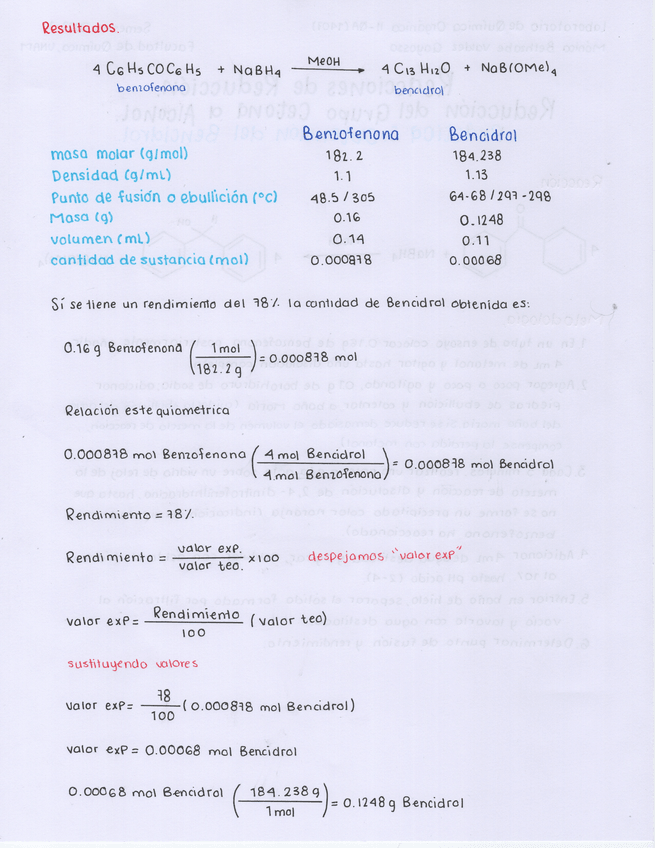 Resultados.
4 C6H5COC6H5 + NaBH4 MeOH → 4 C13H12O + NaB(OMe)4
benzofenona bencidrol
Benzofenona Bencidrol
masa molar (g/mol) 182.2 184.238
Densidad (g/mL) 1.1 1.13
Punto de fusión o ebullición (°C) 48.5/305 64-68/297-298
Masa (g) 0.16 0.1248
volumen (mL) 0.14 0.11
cantidad de sustancia (mol) 0.000878 0.00068
Sí se tiene un rendimiento del 78% la cantidad de Bencidrol obtenida es:
0.16 g Benzofenona (1mol / 182.2g) = 0.000878 mol
Relación estequiometrica
0.000878 mol Benzofenona (4 mol Bencidrol / 4 mol Benzofenona) = 0.000878 mol Bencidrol
Rendimiento = 78%
Rendimiento = valor exp. / valor teo. x100 despejamos "valor exp"
valor exp = Rendimiento / 100 (valor teo)
sustituyendo valores
valor exp = 78 / 100 (0.000878 mol Bencidrol)
valor exp = 0.00068 mol Bencidrol
0.00068 mol Bencidrol (184.238g / 1mol) = 0.1248g Bencidrol